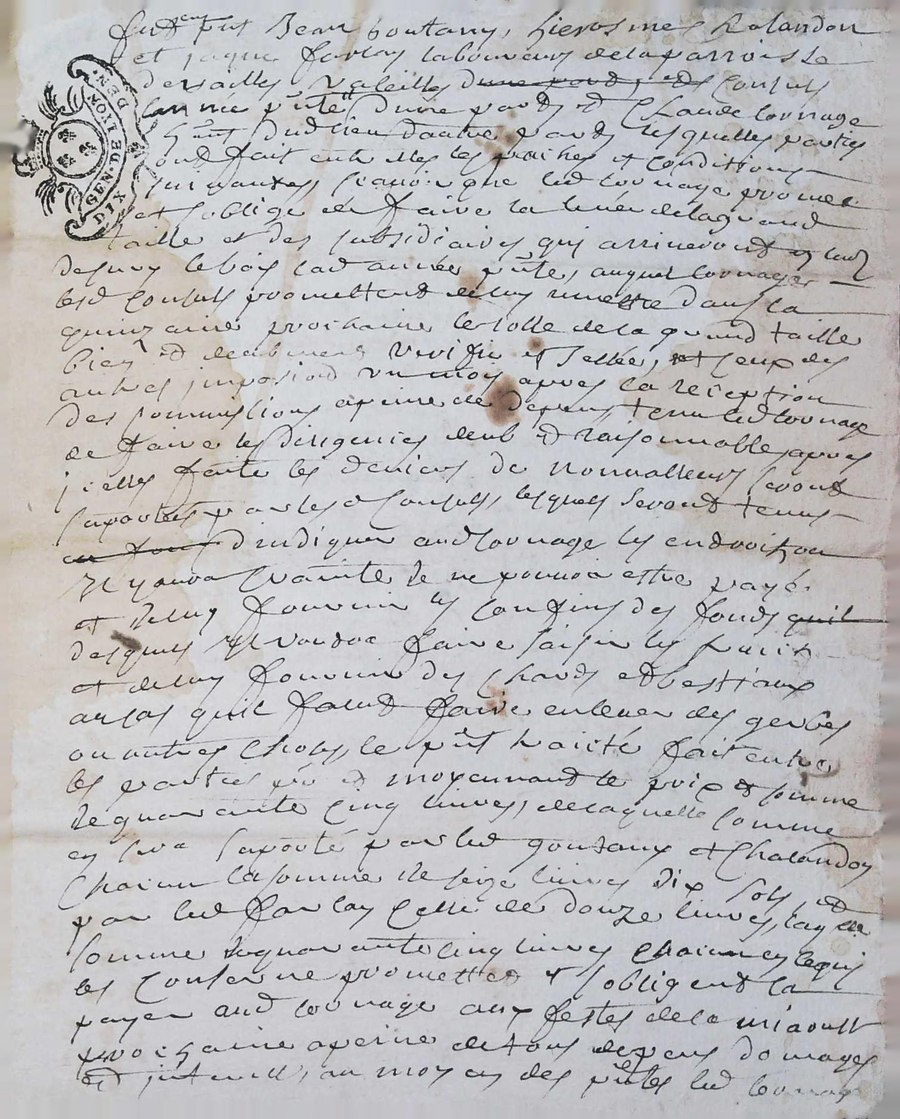 furent pnts Jean goutany, hierosmes Chalandon
et jaque farlay laboureurs de la parroisse
de Salles Valeilles d'une part, et consuls
lannee pnte d'une part et Claude Cornage
dudit lieu d'autre part lesquelles parties
ont fait entre elles les paches et conditions
suivantes, scavoir que led Cornage promet
et soblige de faire la levée de la grand
taille et des subsidiaires qui arriveront
despuis le bois lad année pnte, auquel Cornage
lesd Consuls promettent de luy remettre dans la
quinzaine prochaine le rolle de la grand taille
bien et deubment verifie et sellée, et ceux des
autres imposions un mois apres la reception
des commissions a peine de depens tenu led Cornage
de faire les diligences deub et raisonnables apres
icelles faite les deniers de nonvalleurs seront
suportés par lesd Consuls, lesquels seront tenus
d'indiquer aud Cornage les endroits ou
il y aura crainte de ne pouvoir estre payé
et de luy fournir les confins des fonds
desquels il voudra faire saisir les fruits
et de luy fournir des chards et bestiaux
au cas quil falut faire enlever des gerbes
ou autres choses, le pnt traicté fait entre
les parties pnt et moyennant le prix et somme
de quarante cinq livres, de laquelle somme
en sera suporté par led goutany et Chalandon
Chacun la somme de seize livres dix sols, et
par led farlay celle de douze livres, laqlle
somme de quarante cinq livres chacun en ce qui
les conserne promettent et sobligent la
payer aud Cornage aux festes de la miaoust
prochaine a peine de tous depens domages
et interests, au moyen des pntes led Cornage
GEN. DE LYON
DIX DEN.